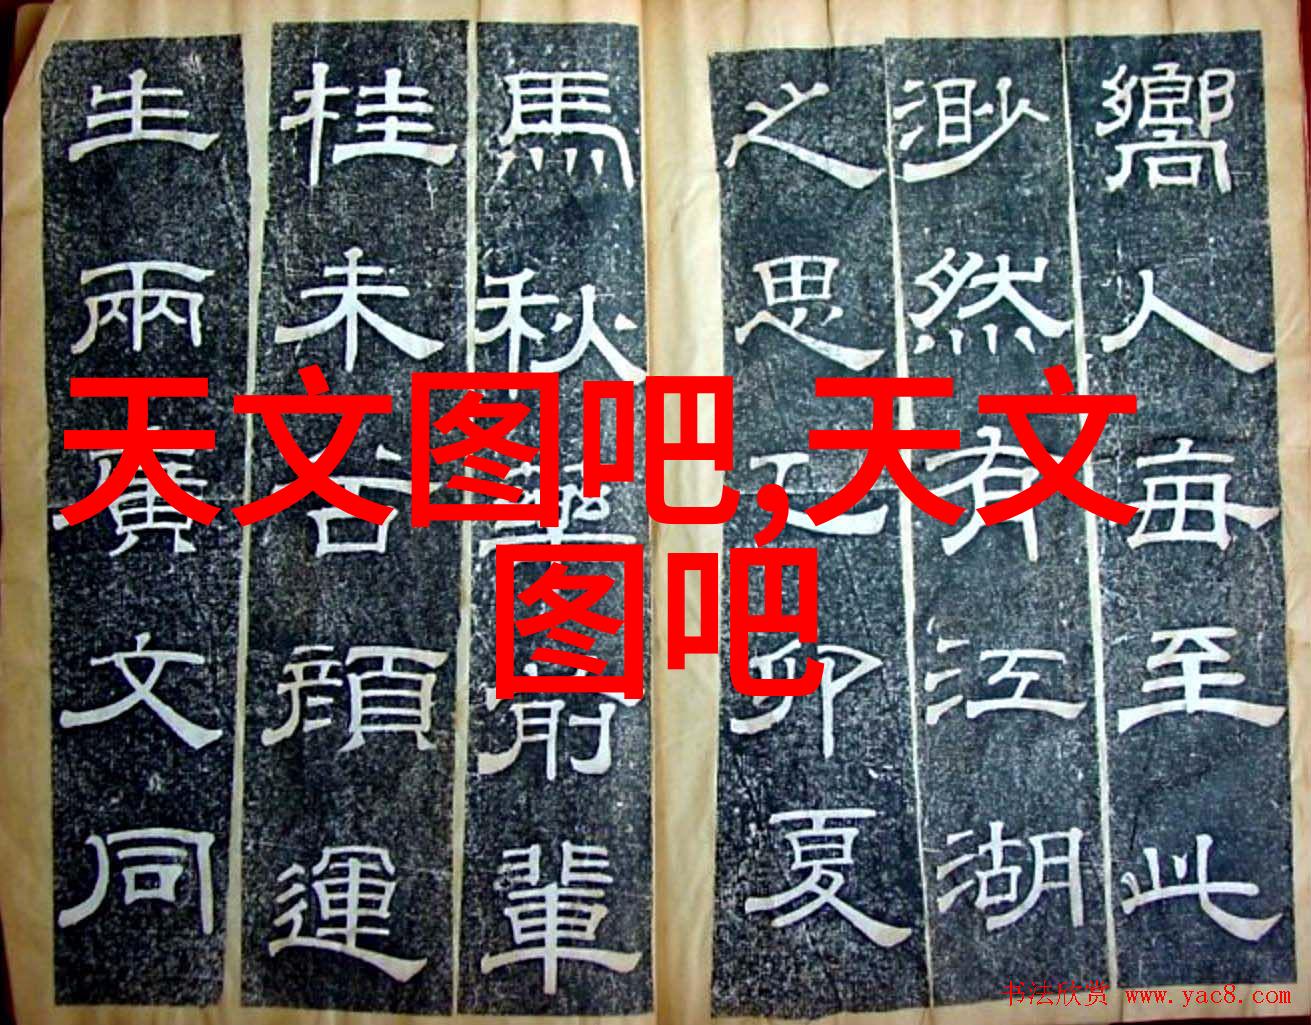 嚮人每至此
渺然有江湖
之思乙卯夏
馬秋藥前輩
桂未谷顔運
生兩廣文同
天文图吧,天文
图吧
书法欣赏 www.yac8.com